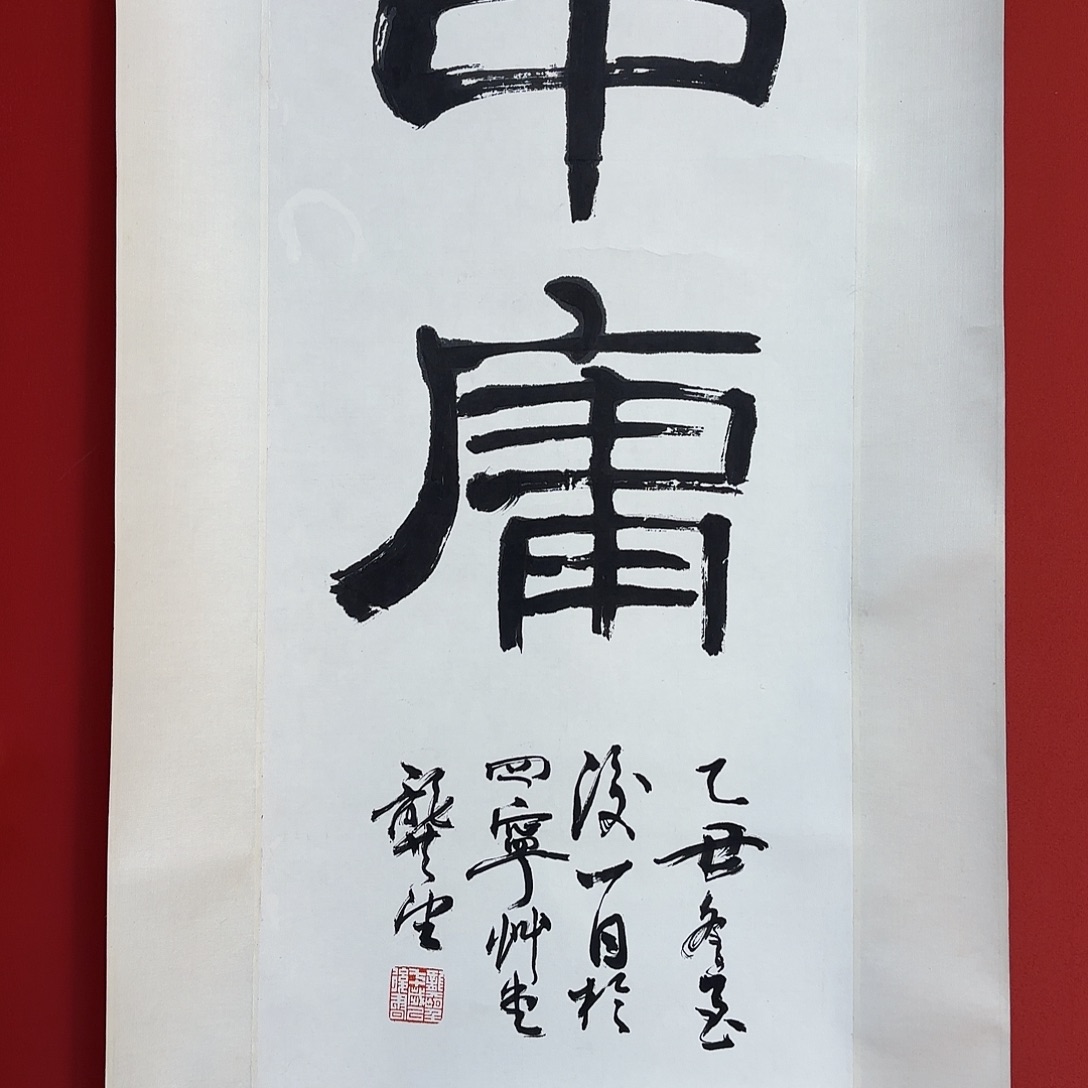 中
庸
乙丑冬至
後一日於
四寧艸堂
龔望